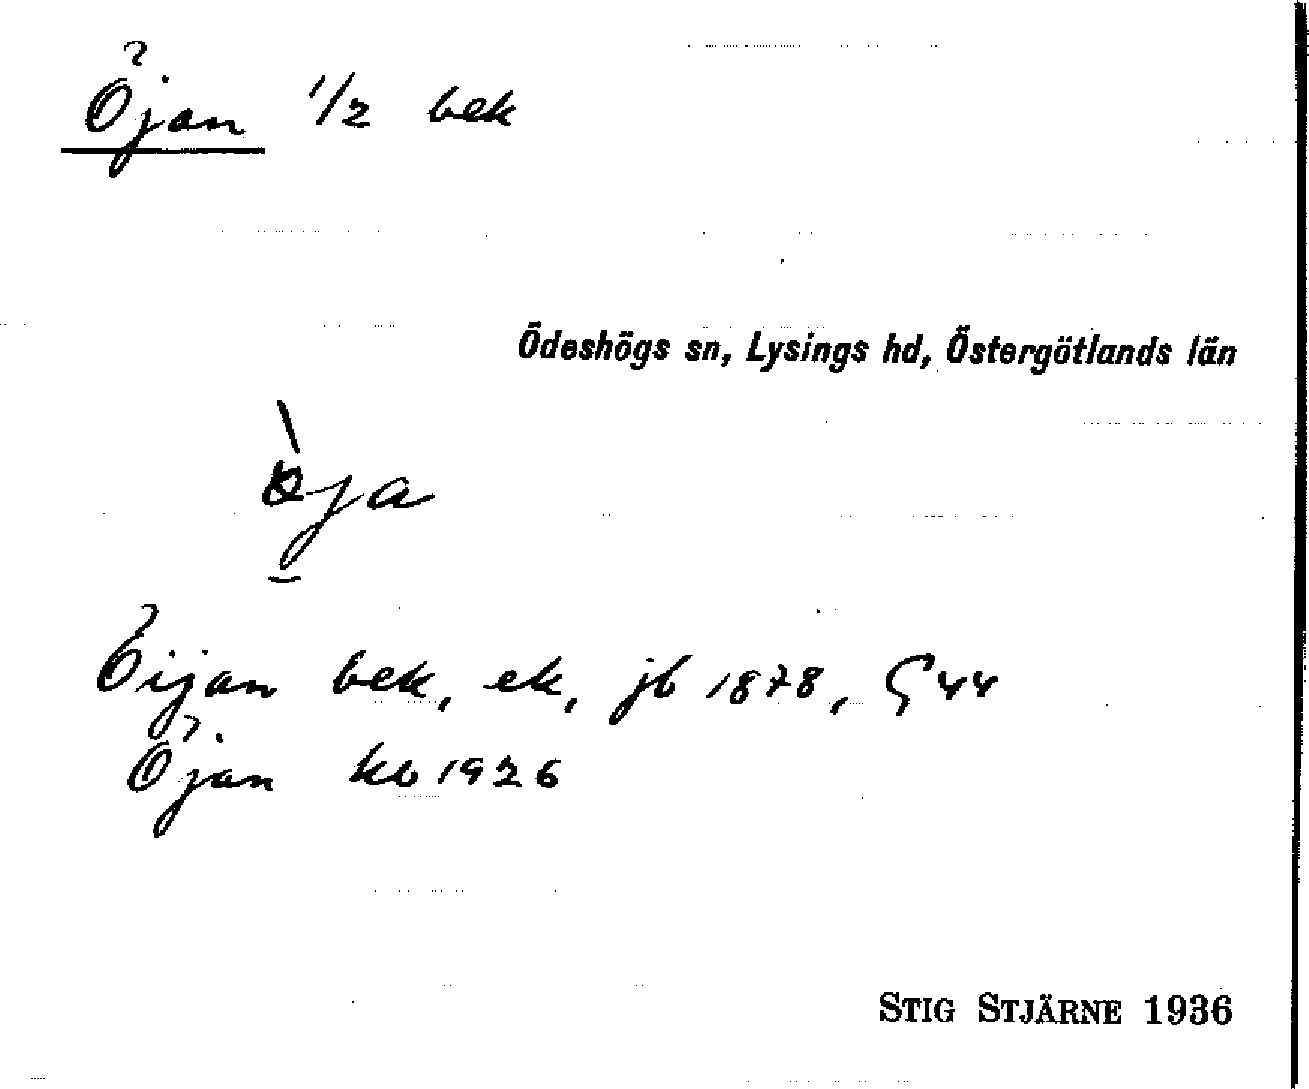 Öjan 1/2 bek
Ödeshögs sn, Lysings hd, Östergötlands län
Öijan bek, ek, jb 1878, § 44
Öjan kb 1926
STIG STJÄRNE 1936